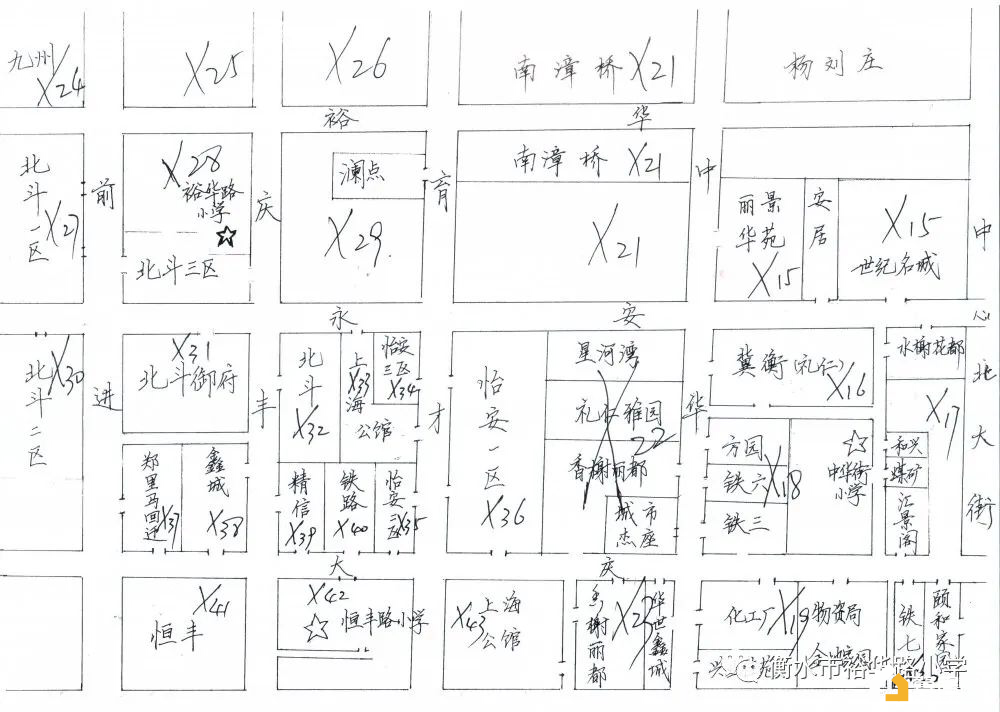 九州
X24
X25
X26
南漳桥 X21
杨刘庄
裕
华
北斗一区
X27
前
X28
裕华路
小学
北斗三区
庆
澜点
X29
育
南漳桥 X21
X21
中
丽景
华苑
X15
安居
X15
世纪名城
中
永
安
心
北斗二区
X30
进
X31
北斗御府
丰
北斗
X32
上海
公馆
X33
怡安
三区
X34
才
怡安一区
X36
星河湾
礼仁雅园
22
香榭丽都
城市
杰座
华
冀衡(礼仁)
X16
水榭花都
X17
北大街
郑里马回迁
X37
鑫城
X38
精信
X39
铁路
X40
怡安二区
X35
方园
铁六
X18
铁三
中华街
小学
和兴
煤矿
汇景阁
大
庆
X41
恒丰
X42
恒丰路小学
X43
上海
公馆
香榭丽都
X23
华世鑫城
化工厂
X19
物资局
铁七
颐和家园
衡水市裕华路小学